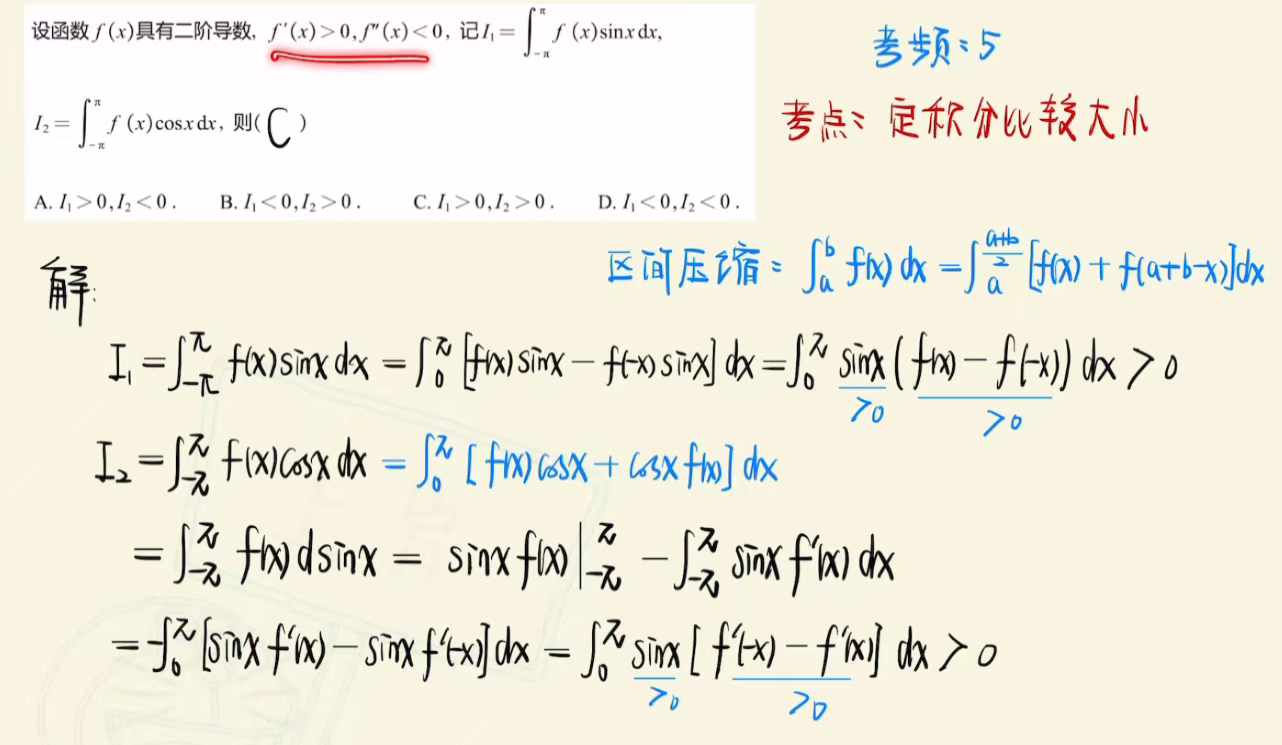 设函数 f(x)具有二阶导数, f′(x)>0, f″(x)<0, 记I₁=∫_{-π}^{π} f(x)sinx dx,
考频：5
I₂=∫_{-π}^{π} f(x)cosx dx, 则( C )
考点：定积分比较大小
A. I₁>0,I₂<0. B. I₁<0,I₂>0. C. I₁>0,I₂>0. D. I₁<0,I₂<0.
区间压缩：∫_a^b f(x)dx=∫_a^{\frac{a+b}{2}}[f(x)+f(a+b-x)]dx
解:
I₁=∫_{-π}^{π} f(x)sinx dx=∫_0^π [f(x)sinx-f(-x)sinx]dx=∫_0^π sinx(f(x)-f(-x))dx>0
>0 >0
I₂=∫_{-π}^{π} f(x)cosx dx=∫_0^π [f(x)cosx+cosx f(x)]dx
=∫_{-π}^{π} f(x)dsinx=sinx f(x)|_{-π}^{π}-∫_{-π}^{π} sinx f′(x)dx
=-∫_0^π [sinx f′(x)-sinx f′(-x)]dx=∫_0^π sinx[f′(-x)-f′(x)]dx>0
>0 >0